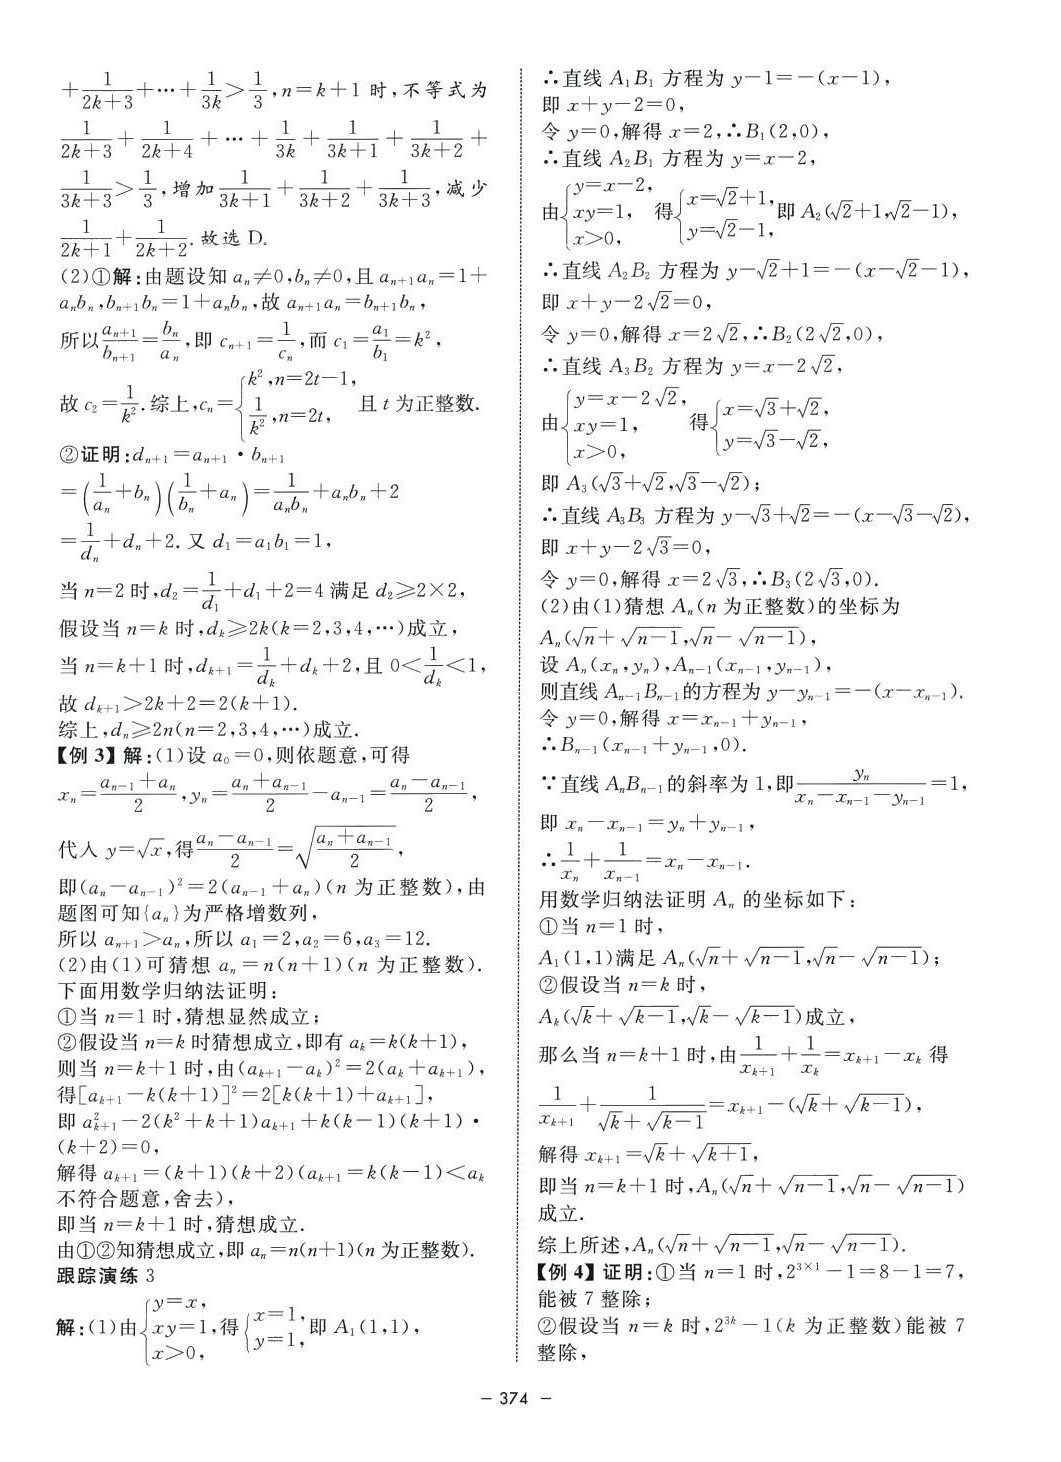 +1/(2k+3)+…+1/(3k)>1/3,n=k+1 时,不等式为
1/(2k+3)+1/(2k+4)+…+1/(3k)+1/(3k+1)+1/(3k+2)+
1/(3k+3)>1/3,增加 1/(3k+1)+1/(3k+2)+1/(3k+3),减少
1/(2k+1)+1/(2k+2).故选 D.
(2)①解:由题设知 aₙ≠0,bₙ≠0,且 aₙ₊₁aₙ=1+
aₙbₙ,bₙ₊₁bₙ=1+aₙbₙ,故 aₙ₊₁aₙ=bₙ₊₁bₙ,
所以 aₙ₊₁/bₙ₊₁=bₙ/aₙ,即 cₙ₊₁=1/cₙ,而 c₁=a₁/b₁=k²,
故 c₂=1/k².综上,cₙ={k²,n=2t-1, 1/k²,n=2t, 且 t 为正整数.
②证明:dₙ₊₁=aₙ₊₁·bₙ₊₁
=(1/aₙ+bₙ)(1/bₙ+aₙ)=1/(aₙbₙ)+aₙbₙ+2
=1/dₙ+dₙ+2.又 d₁=a₁b₁=1,
当 n=2 时,d₂=1/d₁+d₁+2=4 满足 d₂≥2×2,
假设当 n=k 时,dₖ≥2k(k=2,3,4,…)成立,
当 n=k+1 时,dₖ₊₁=1/dₖ+dₖ+2,且 0<1/dₖ<1,
故 dₖ₊₁>2k+2=2(k+1).
综上,dₙ≥2n(n=2,3,4,…)成立.
【例 3】解:(1)设 a₀=0,则依题意,可得
xₙ=(aₙ₋₁+aₙ)/2,yₙ=(aₙ+aₙ₋₁)/2-aₙ₋₁=(aₙ-aₙ₋₁)/2,
代入 y=√x,得(aₙ-aₙ₋₁)/2=√((aₙ+aₙ₋₁)/2),
即(aₙ-aₙ₋₁)²=2(aₙ₋₁+aₙ)(n 为正整数),由
题图可知{aₙ}为严格增数列,
所以 aₙ₊₁>aₙ,所以 a₁=2,a₂=6,a₃=12.
(2)由(1)可猜想 aₙ=n(n+1)(n 为正整数).
下面用数学归纳法证明:
①当 n=1 时,猜想显然成立;
②假设当 n=k 时猜想成立,即有 aₖ=k(k+1),
则当 n=k+1 时,由(aₖ₊₁-aₖ)²=2(aₖ+aₖ₊₁),
得[aₖ₊₁-k(k+1)]²=2[k(k+1)+aₖ₊₁],
即 a²ₖ₊₁-2(k²+k+1)aₖ₊₁+k(k-1)(k+1)·
(k+2)=0,
解得 aₖ₊₁=(k+1)(k+2)(aₖ₊₁=k(k-1)<aₖ
不符合题意,舍去),
即当 n=k+1 时,猜想成立.
由①②知猜想成立,即 aₙ=n(n+1)(n 为正整数).
跟踪演练 3
解:(1)由{y=x, xy=1, x>0, 得{x=1, y=1, 即 A₁(1,1),
∴直线 A₁B₁ 方程为 y-1=-(x-1),
即 x+y-2=0,
令 y=0,解得 x=2,∴B₁(2,0),
∴直线 A₂B₁ 方程为 y=x-2,
由{y=x-2, xy=1, x>0, 得{x=√2+1, y=√2-1, 即 A₂(√2+1,√2-1),
∴直线 A₂B₂ 方程为 y-√2+1=-(x-√2-1),
即 x+y-2√2=0,
令 y=0,解得 x=2√2,∴B₂(2√2,0),
∴直线 A₃B₂ 方程为 y=x-2√2,
由{y=x-2√2, xy=1, x>0, 得{x=√3+√2, y=√3-√2,
即 A₃(√3+√2,√3-√2);
∴直线 A₃B₃ 方程为 y-√3+√2=-(x-√3-√2),
即 x+y-2√3=0,
令 y=0,解得 x=2√3,∴B₃(2√3,0).
(2)由(1)猜想 Aₙ(n 为正整数)的坐标为
Aₙ(√n+√(n-1),√n-√(n-1)),
设 Aₙ(xₙ,yₙ),Aₙ₋₁(xₙ₋₁,yₙ₋₁),
则直线 Aₙ₋₁Bₙ₋₁的方程为 y-yₙ₋₁=-(x-xₙ₋₁).
令 y=0,解得 x=xₙ₋₁+yₙ₋₁,
∴Bₙ₋₁(xₙ₋₁+yₙ₋₁,0).
∵直线 AₙBₙ₋₁的斜率为 1,即 yₙ/(xₙ-xₙ₋₁-yₙ₋₁)=1,
即 xₙ-xₙ₋₁=yₙ+yₙ₋₁,
∴1/xₙ+1/xₙ₋₁=xₙ-xₙ₋₁.
用数学归纳法证明 Aₙ 的坐标如下:
①当 n=1 时,
A₁(1,1)满足 Aₙ(√n+√(n-1),√n-√(n-1));
②假设当 n=k 时,
Aₖ(√k+√(k-1),√k-√(k-1))成立,
那么当 n=k+1 时,由 1/xₖ₊₁+1/xₖ=xₖ₊₁-xₖ 得
1/xₖ₊₁+1/(√k+√(k-1))=xₖ₊₁-(√k+√(k-1)),
解得 xₖ₊₁=√k+√(k+1),
即当 n=k+1 时,Aₙ(√n+√(n-1),√n-√(n-1))
成立.
综上所述,Aₙ(√n+√(n-1),√n-√(n-1)).
【例 4】证明:①当 n=1 时,2³ˣ¹-1=8-1=7,
能被 7 整除;
②假设当 n=k 时,2³ᵏ-1(k 为正整数)能被 7
整除,
- 374 -